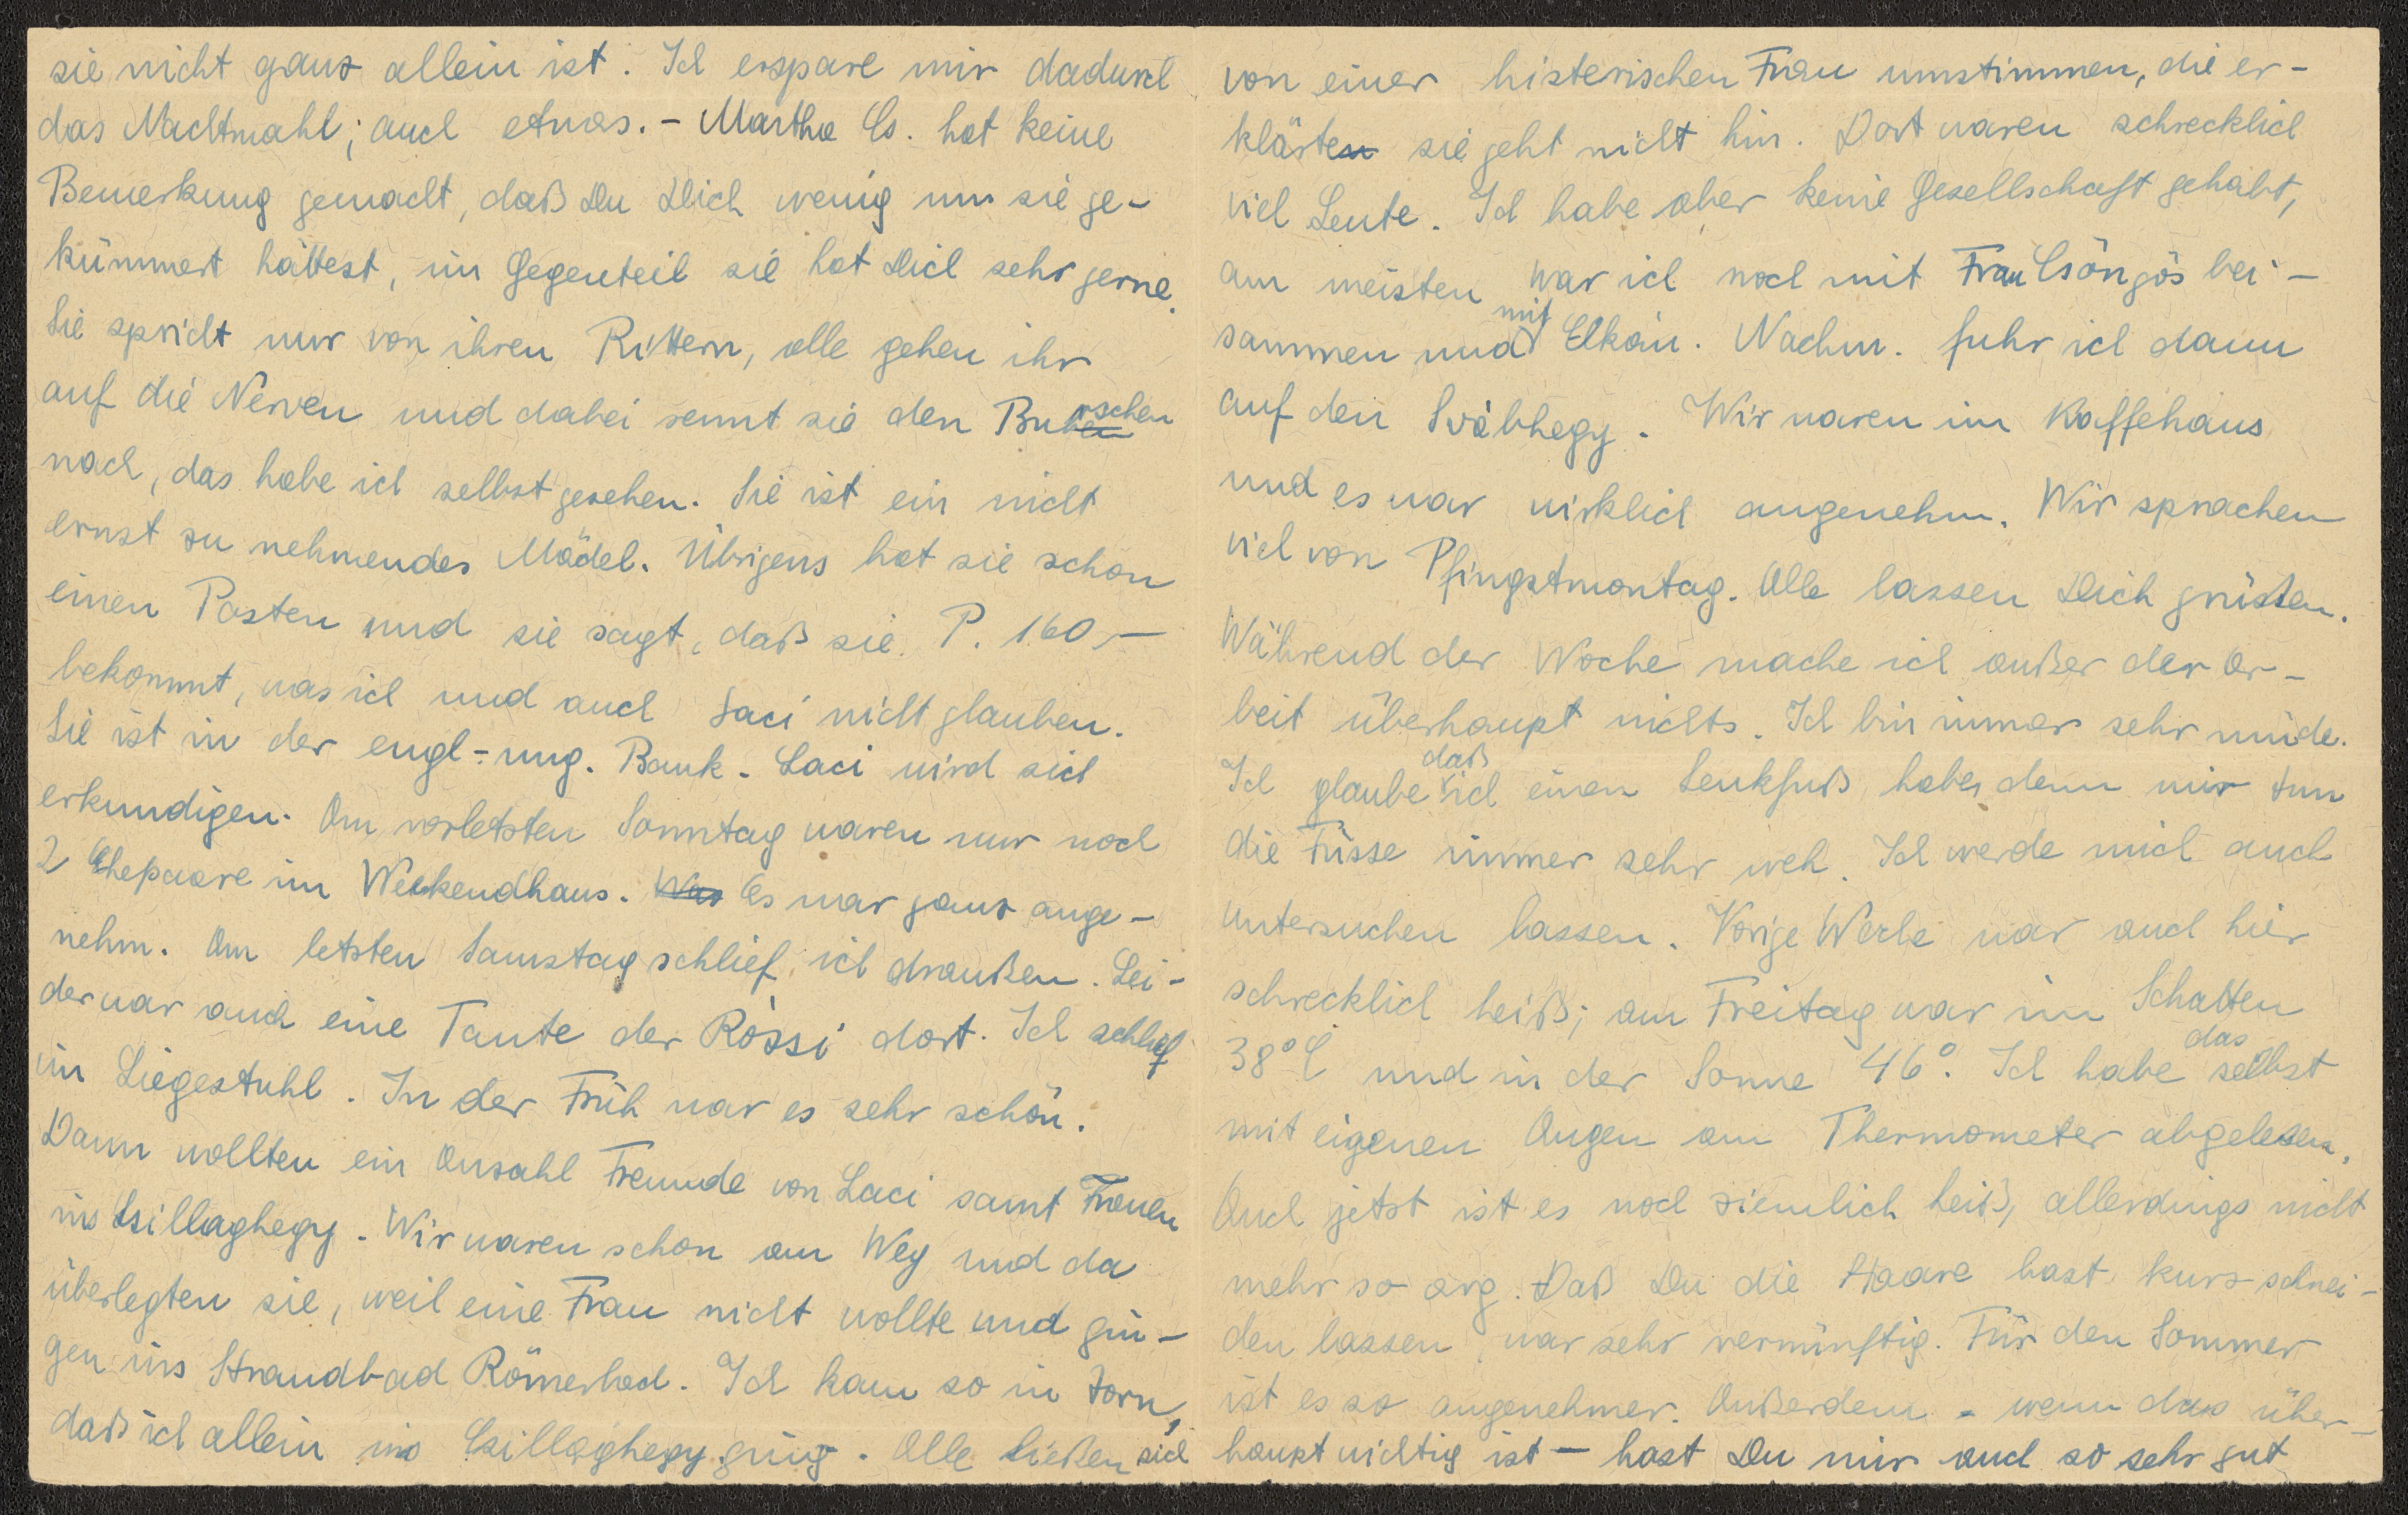 sie nicht ganz allein ist. Ich erspare mir dadurch
das Nachtmahl; auch etwas. – Martha Cs. hat keine
Bemerkung gemacht, daß Du Dich wenig um sie ge-
kümmert hättest, im Gegenteil sie hat Dich sehr gerne.
Sie spricht nur von ihren Rittern, alle gehen ihr
auf die Nerven und dabei rennt sie den Burschen
nach, das habe ich selbst gesehen. Sie ist ein nicht
ernst zu nehmendes Mädel. Übrigens hat sie schon
einen Posten und sie sagt, daß sie P. 160.–
bekommt, was ich und auch Laci nicht glauben.
Sie ist in der engl-ung. Bank. Laci wird sich
erkundigen. Am vorletzten Sonntag waren nur noch
2 Ehepaare im Weekendhaus. Was Es war ganz ange-
nehm. Am letzten Samstag schlief ich draußen. Lei-
der war auch eine Tante der Rössi dort. Ich schlief
im Liegestuhl. In der Früh war es sehr schön.
Dann wollten ein Anzahl Freunde von Laci samt Frauen
ins Csillaghegy. Wir waren schon am Weg und da
überlegten sie, weil eine Frau nicht wollte und gin-
gen ins Strandbad Römerbad. Ich kam so in Zorn,
daß ich allein ins Csillaghegy ging. Alle ließen sich
von einer histerischen Frau umstimmen, die er-
klärten sie geht nicht hin. Dort waren schrecklich
viel Leute. Ich habe aber keine Gesellschaft gehabt,
am meisten war ich noch mit Frau Csöngös bei-
sammen und mit Elkán. Nachm. fuhr ich dann
auf den Svábhegy. Wir waren im Kaffehaus
und es war wirklich angenehm. Wir sprachen
viel von Pfingstmontag. Alle lassen Dich grüßen.
Während der Woche mache ich außer der Ar-
beit überhaupt nichts. Ich bin immer sehr müde.
Ich glaube daß ich einen Senkfuß habe, denn mir tun
die Füsse immer sehr weh. Ich werde mich auch
untersuchen lassen. Vorige Woche war auch hier
schrecklich heiß; am Freitag war im Schatten
38° C und in der Sonne 46°. Ich habe das selbst
mit eigenen Augen am Thermometer abgelesen.
Auch jetzt ist es noch ziemlich heiß, allerdings nicht
mehr so arg. Daß Du die Haare hast kurz schnei-
den lassen, war sehr vernünftig. Für den Sommer
ist es so angenehmer. Außerdem – wenn das über-
haupt wichtig ist – hast Du mir auch so sehr gut